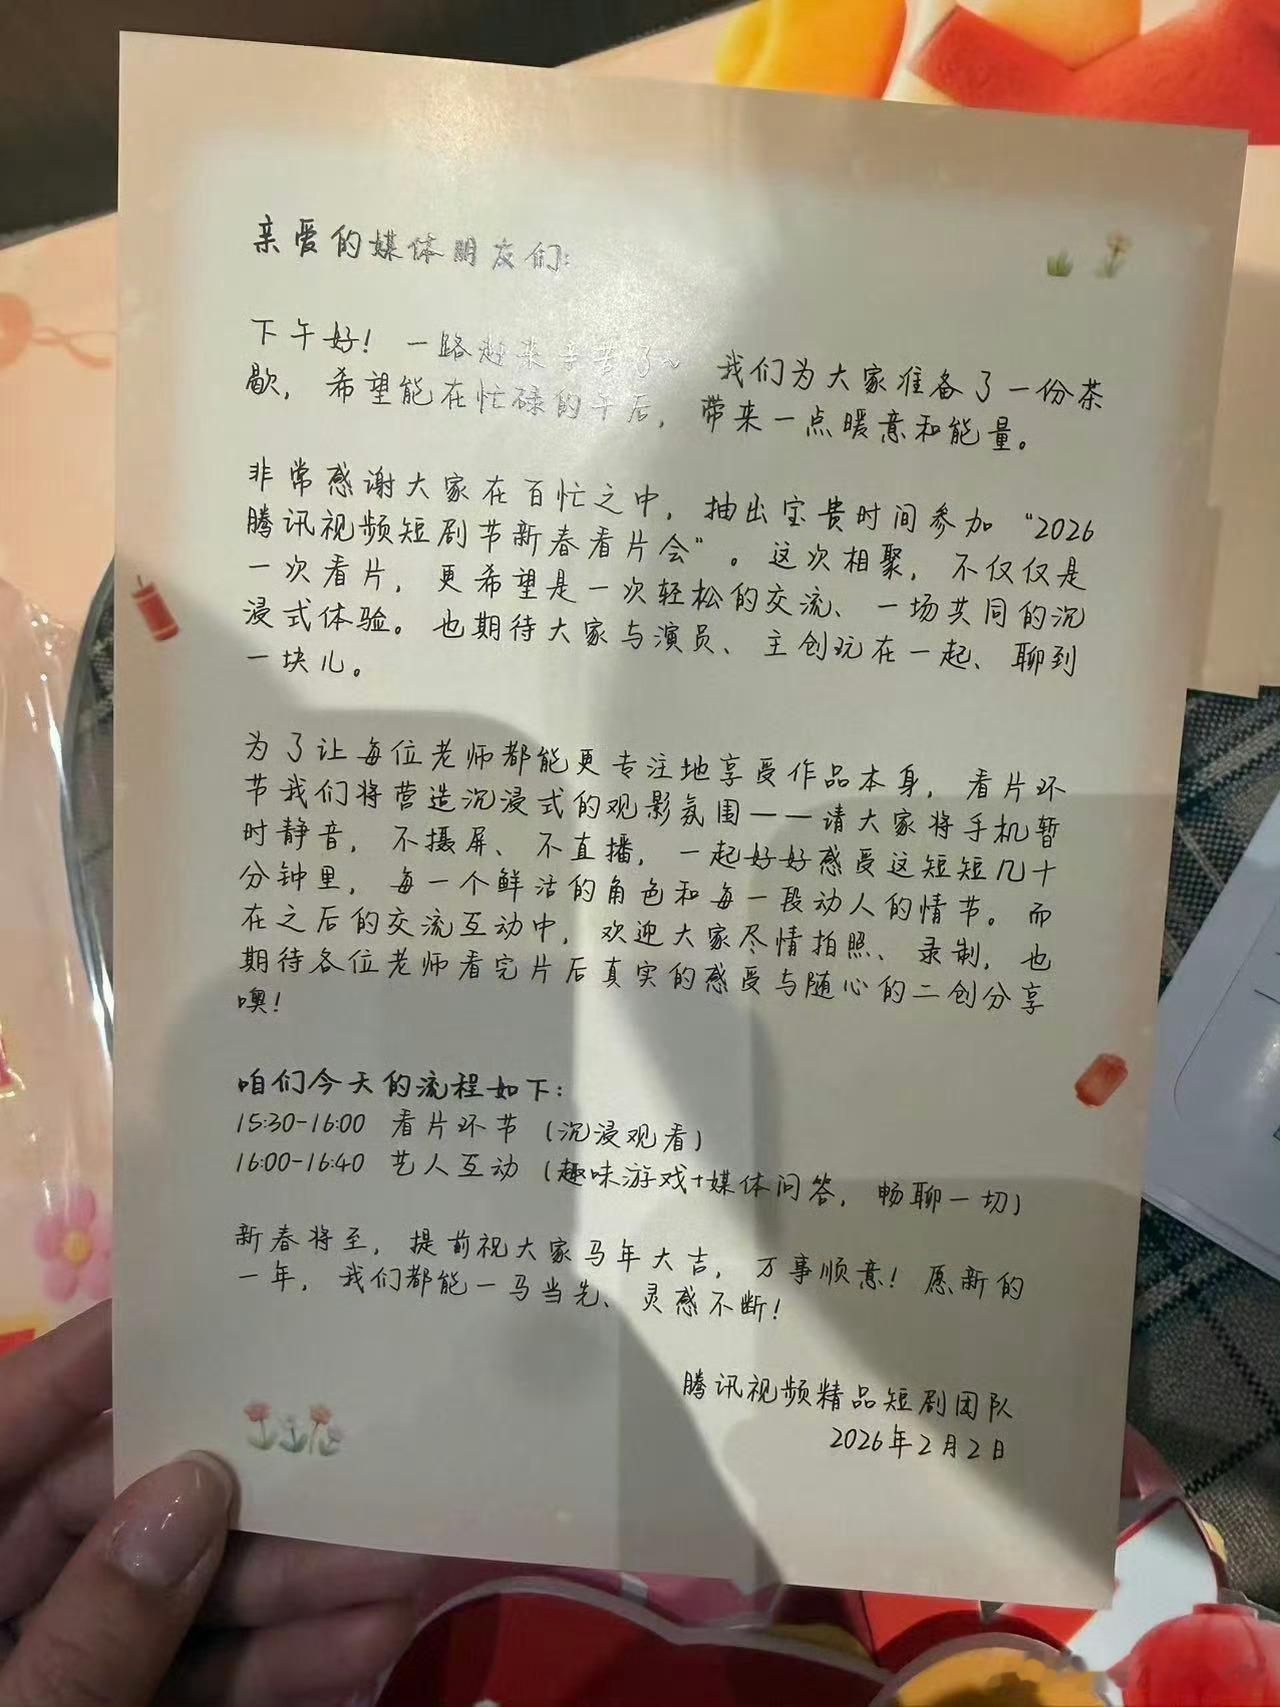 亲爱的媒体朋友们：
下午好！一路赶来辛苦了~ 我们为大家准备了一份茶
歇，希望能在忙碌的午后，带来一点暖意和能量。
非常感谢大家在百忙之中，抽出宝贵时间参加“2026
腾讯视频短剧节新春看片会”。这次相聚，不仅仅是
一次看片，更希望是一次轻松的交流、一场共同的沉
浸式体验。也期待大家与演员、主创玩在一起、聊到
一块儿。
为了让每位老师都能更专注地享受作品本身，看片环
节我们将营造沉浸式的观影氛围——请大家将手机暂
时静音，不摄屏、不直播，一起好好感受这短短几十
分钟里，每一个鲜活的角色和每一段动人的情节。而
在之后的交流互动中，欢迎大家尽情拍照、录制，也
期待各位老师看完片后真实的感受与随心的二创分享
噢！
咱们今天的流程如下：
15:30-16:00 看片环节（沉浸观看）
16:00-16:40 艺人互动（趣味游戏+媒体问答，畅聊一切）
新春将至，提前祝大家马年大吉，万事顺意！愿新的
一年，我们都能一马当先、灵感不断！
腾讯视频精品短剧团队
2026年2月2日